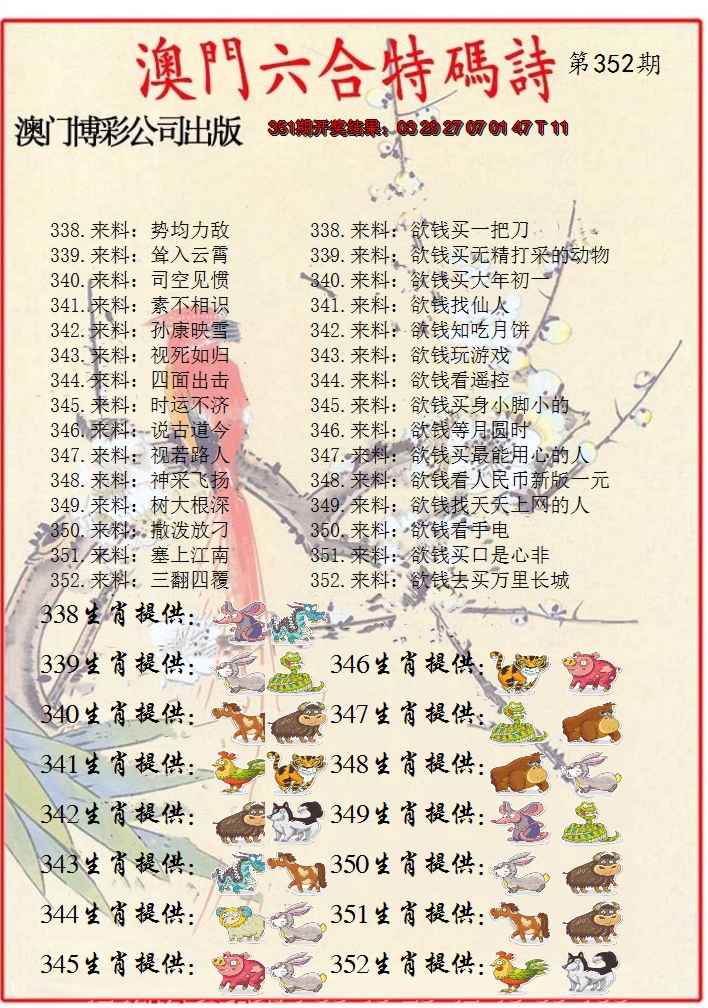 澳門六合特碼詩 第352期
澳门博彩公司出版 351期开奖结果：03 29 27 07 01 47 T 11
338.来料：势均力敌 338.来料：欲钱买一把刀
339.来料：耸入云霄 339.来料：欲钱买无精打采的动物
340.来料：司空见惯 340.来料：欲钱买大年初一
341.来料：素不相识 341.来料：欲钱找仙人
342.来料：孙康映雪 342.来料：欲钱知吃月饼
343.来料：视死如归 343.来料：欲钱玩游戏
344.来料：四面出击 344.来料：欲钱看遥控
345.来料：时运不济 345.来料：欲钱买身小脚小的
346.来料：说古道今 346.来料：欲钱等月圆时
347.来料：视若路人 347.来料：欲钱买最能用心的人
348.来料：神采飞扬 348.来料：欲钱看人民币新版一元
349.来料：树大根深 349.来料：欲钱找天天上网的人
350.来料：撒泼放刁 350.来料：欲钱看手电
351.来料：塞上江南 351.来料：欲钱买口是心非
352.来料：三翻四覆 352.来料：欲钱去买万里长城
338生肖提供：
339生肖提供： 346生肖提供：
340生肖提供： 347生肖提供：
341生肖提供： 348生肖提供：
342生肖提供： 349生肖提供：
343生肖提供： 350生肖提供：
344生肖提供： 351生肖提供：
345生肖提供： 352生肖提供：